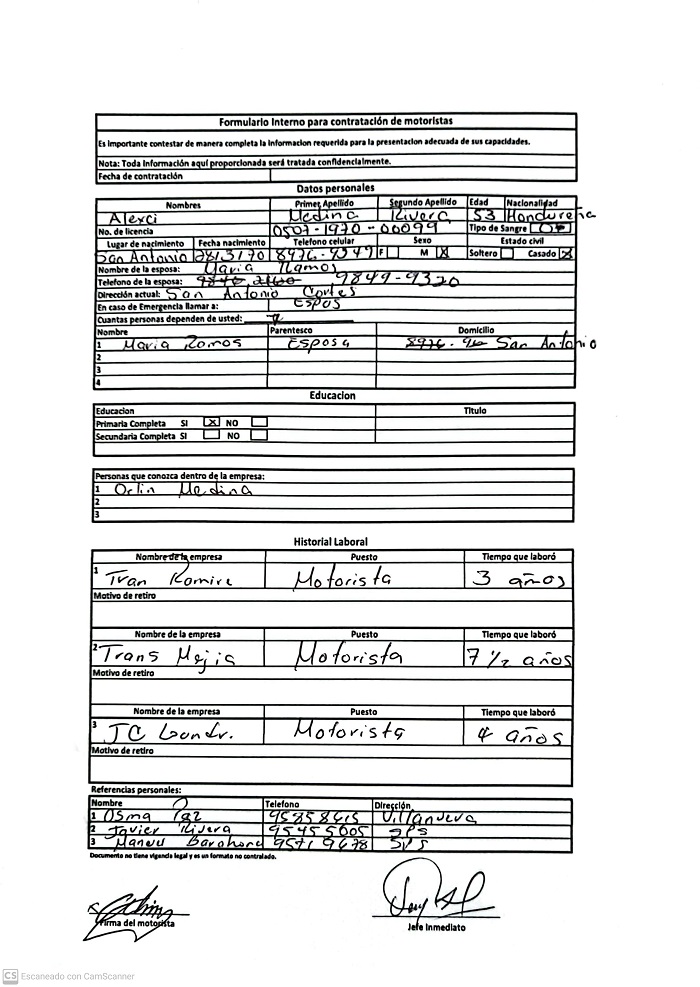 Formulario Interno para contratación de motoristas
Es importante contestar de manera completa la informacion requerida para la presentacion adecuada de sus capacidades.
Nota: Toda información aquí proporcionada será tratada confidencialmente.
Fecha de contratación
Datos personales
Nombres Primer Apellido Segundo Apellido Edad Nacionalidad
Alexci Medina Rivera 53 Hondureña
No. de licencia 0507-1970-00099 Tipo de Sangre O+
Lugar de nacimiento Fecha nacimiento Telefono celular Sexo Estado civil
San Antonio F M X Soltero Casado X
Nombre de la esposa: Maria Ramos
Telefono de la esposa: 9849-9320
Dirección actual: San Antonio Cortes
En caso de Emergencia llamar a: Espos
Cuantas personas dependen de usted:
Nombre Parentesco Domicilio
1 Maria Ramos Esposa San Antonio
2
3
4
Educacion
Educacion Titulo
Primaria Completa SI X NO
Secundaria Completa SI NO
Personas que conozca dentro de la empresa:
1 Orlin Medina
2
3
Historial Laboral
Nombre de la empresa Puesto Tiempo que laboró
1 Tran Romire Motorista 3 años
Motivo de retiro
Nombre de la empresa Puesto Tiempo que laboró
2 Trans Mejia Motorista 7 1/2 años
Motivo de retiro
Nombre de la empresa Puesto Tiempo que laboró
3 JC Motorista 4 años
Motivo de retiro
Referencias personales:
Nombre Telefono Dirección
1 Osma 95858615 Villanueva
2 Javier Rivera 95455005 SPS
3 Manuel Barahona 9571 9678 SPS
Documento no tiene vigencia legal y es un formato no controlado.
Firma del motorista Jefe Inmediato
CS Escaneado con CamScanner